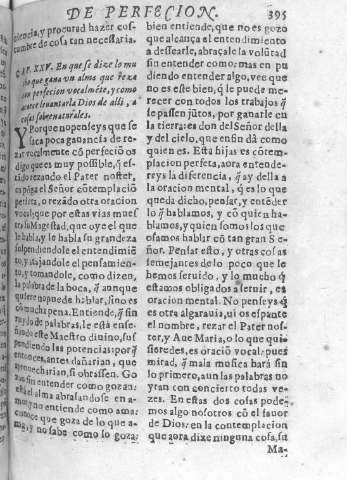 DE PERFECION.
395
ciencia, y procurad hazer cos-
tumbre de cosa tan necessaria.
CAP. XXV. En que se dize lo mu
cho que gana vn alma que reza
con perfecion vocalmẽte, y como
acaece leuantarla Dios de alli, a
cosas sobrenaturales.
Y Porque no penseys que se
saca poca ganancia de re-
zar vocalmente cõ perfeciõ os
digo que es muy possible, q̃ es-
tãdo rezando el Pater noster,
os põga el Señor cõtemplaciõ
perfeta, o rezãdo otra oracion
vocal; que por estas vias mues
tra su Magestad, que oye el que
le habla, y le habla su grandeza
suspendiendole el entendimiẽ
to, y atajandole el pensamiẽn-
to, y tomandole, como dizen,
la palabra de la boca, q̃ aunque
quiere no puede hablar, sino es
cõ mucha pena. Entiende, q̃ sin
ruydo de palabras, le està ense-
ñando este Maestro diuino, sus
pendiendo las potencias: porq̃
entonces, antes dañarian, que
aprouecharian, si obrassen. Go
zan sin entender como gozan:
està el alma abrasandose en a-
mor, y no entiende como ama:
conoce que goza de lo que a-
ma, y no sabe como lo goza:
bien entiende, que no es gozo
que alcança el entendimiento
a dessearle, abraçale la volũtad
sin entender como: mas en pu
diendo entender algo, vee que
no es este biẽ, q̃ le puede me-
recer con todos los trabajos q̃
se passen jũtos, por ganarle en
la tierra: es don del Señor della
y del cielo, que enfin dà como
quien es. Esta hijas es cõtem-
placion perfeta, aora entende-
reys la diferencia, q̃ ay della a
la oracion mental, q̃ es lo que
queda dicho, pensar, y entẽder
lo q̃ hablamos, y cõ quien ha-
blamos, y quien somos los que
osamos hablar cõ tan gran Se
ñor. Pensar esto, y otras cosas
semejantes de lo poco que le
hemos seruido, y lo mucho q̃
estamos obligados a seruir, es
oracion mental. No penseys q̃
es otra algarauia, ni os espante
el nombre, rezar el Pater nos-
ter, y Aue Maria, o lo que qui
sieredes, es oraciõ vocal: pues
mirad, q̃ mala musica harà sin
lo primero, aun las palabras no
yran con concierto todas ve-
zes. En estas dos cosas podẽ-
mos algo nosotros cõ el fauor
de Dios: en la contemplacion
que aora dixe ninguna cosa, su
Ma-